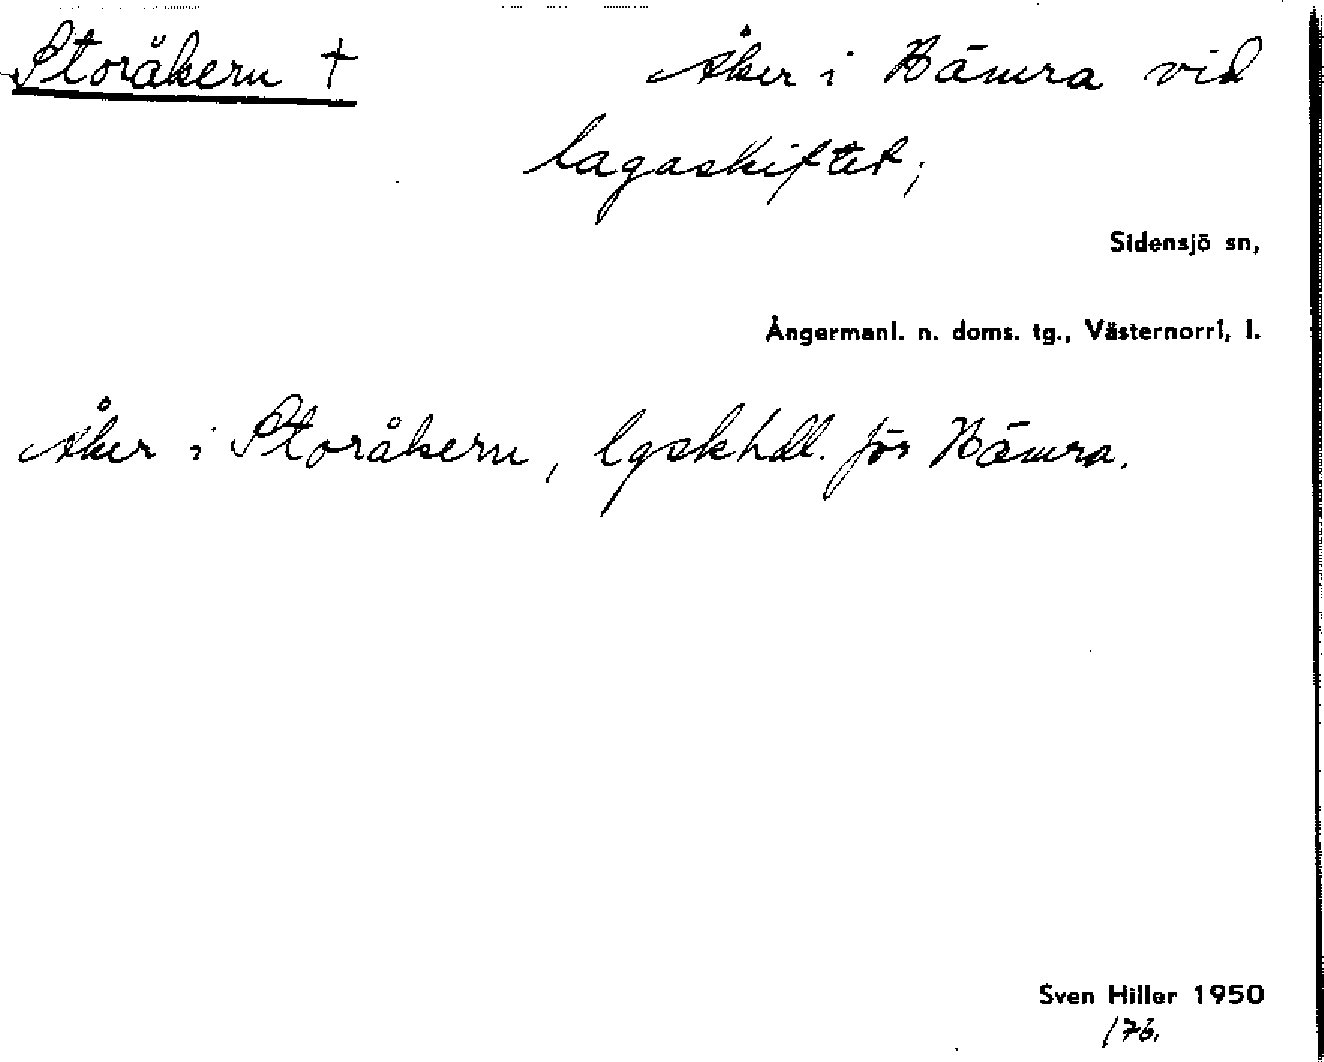 Storåkern †
Åker i Bämra vid
lagaskiftet;
Sidensjö sn,
Ångermanl. n. doms. tg., Västernorrl. l.
Åker i Storåkern, lgskhdl. för Bämra.
Sven Hiller 1950
/76.